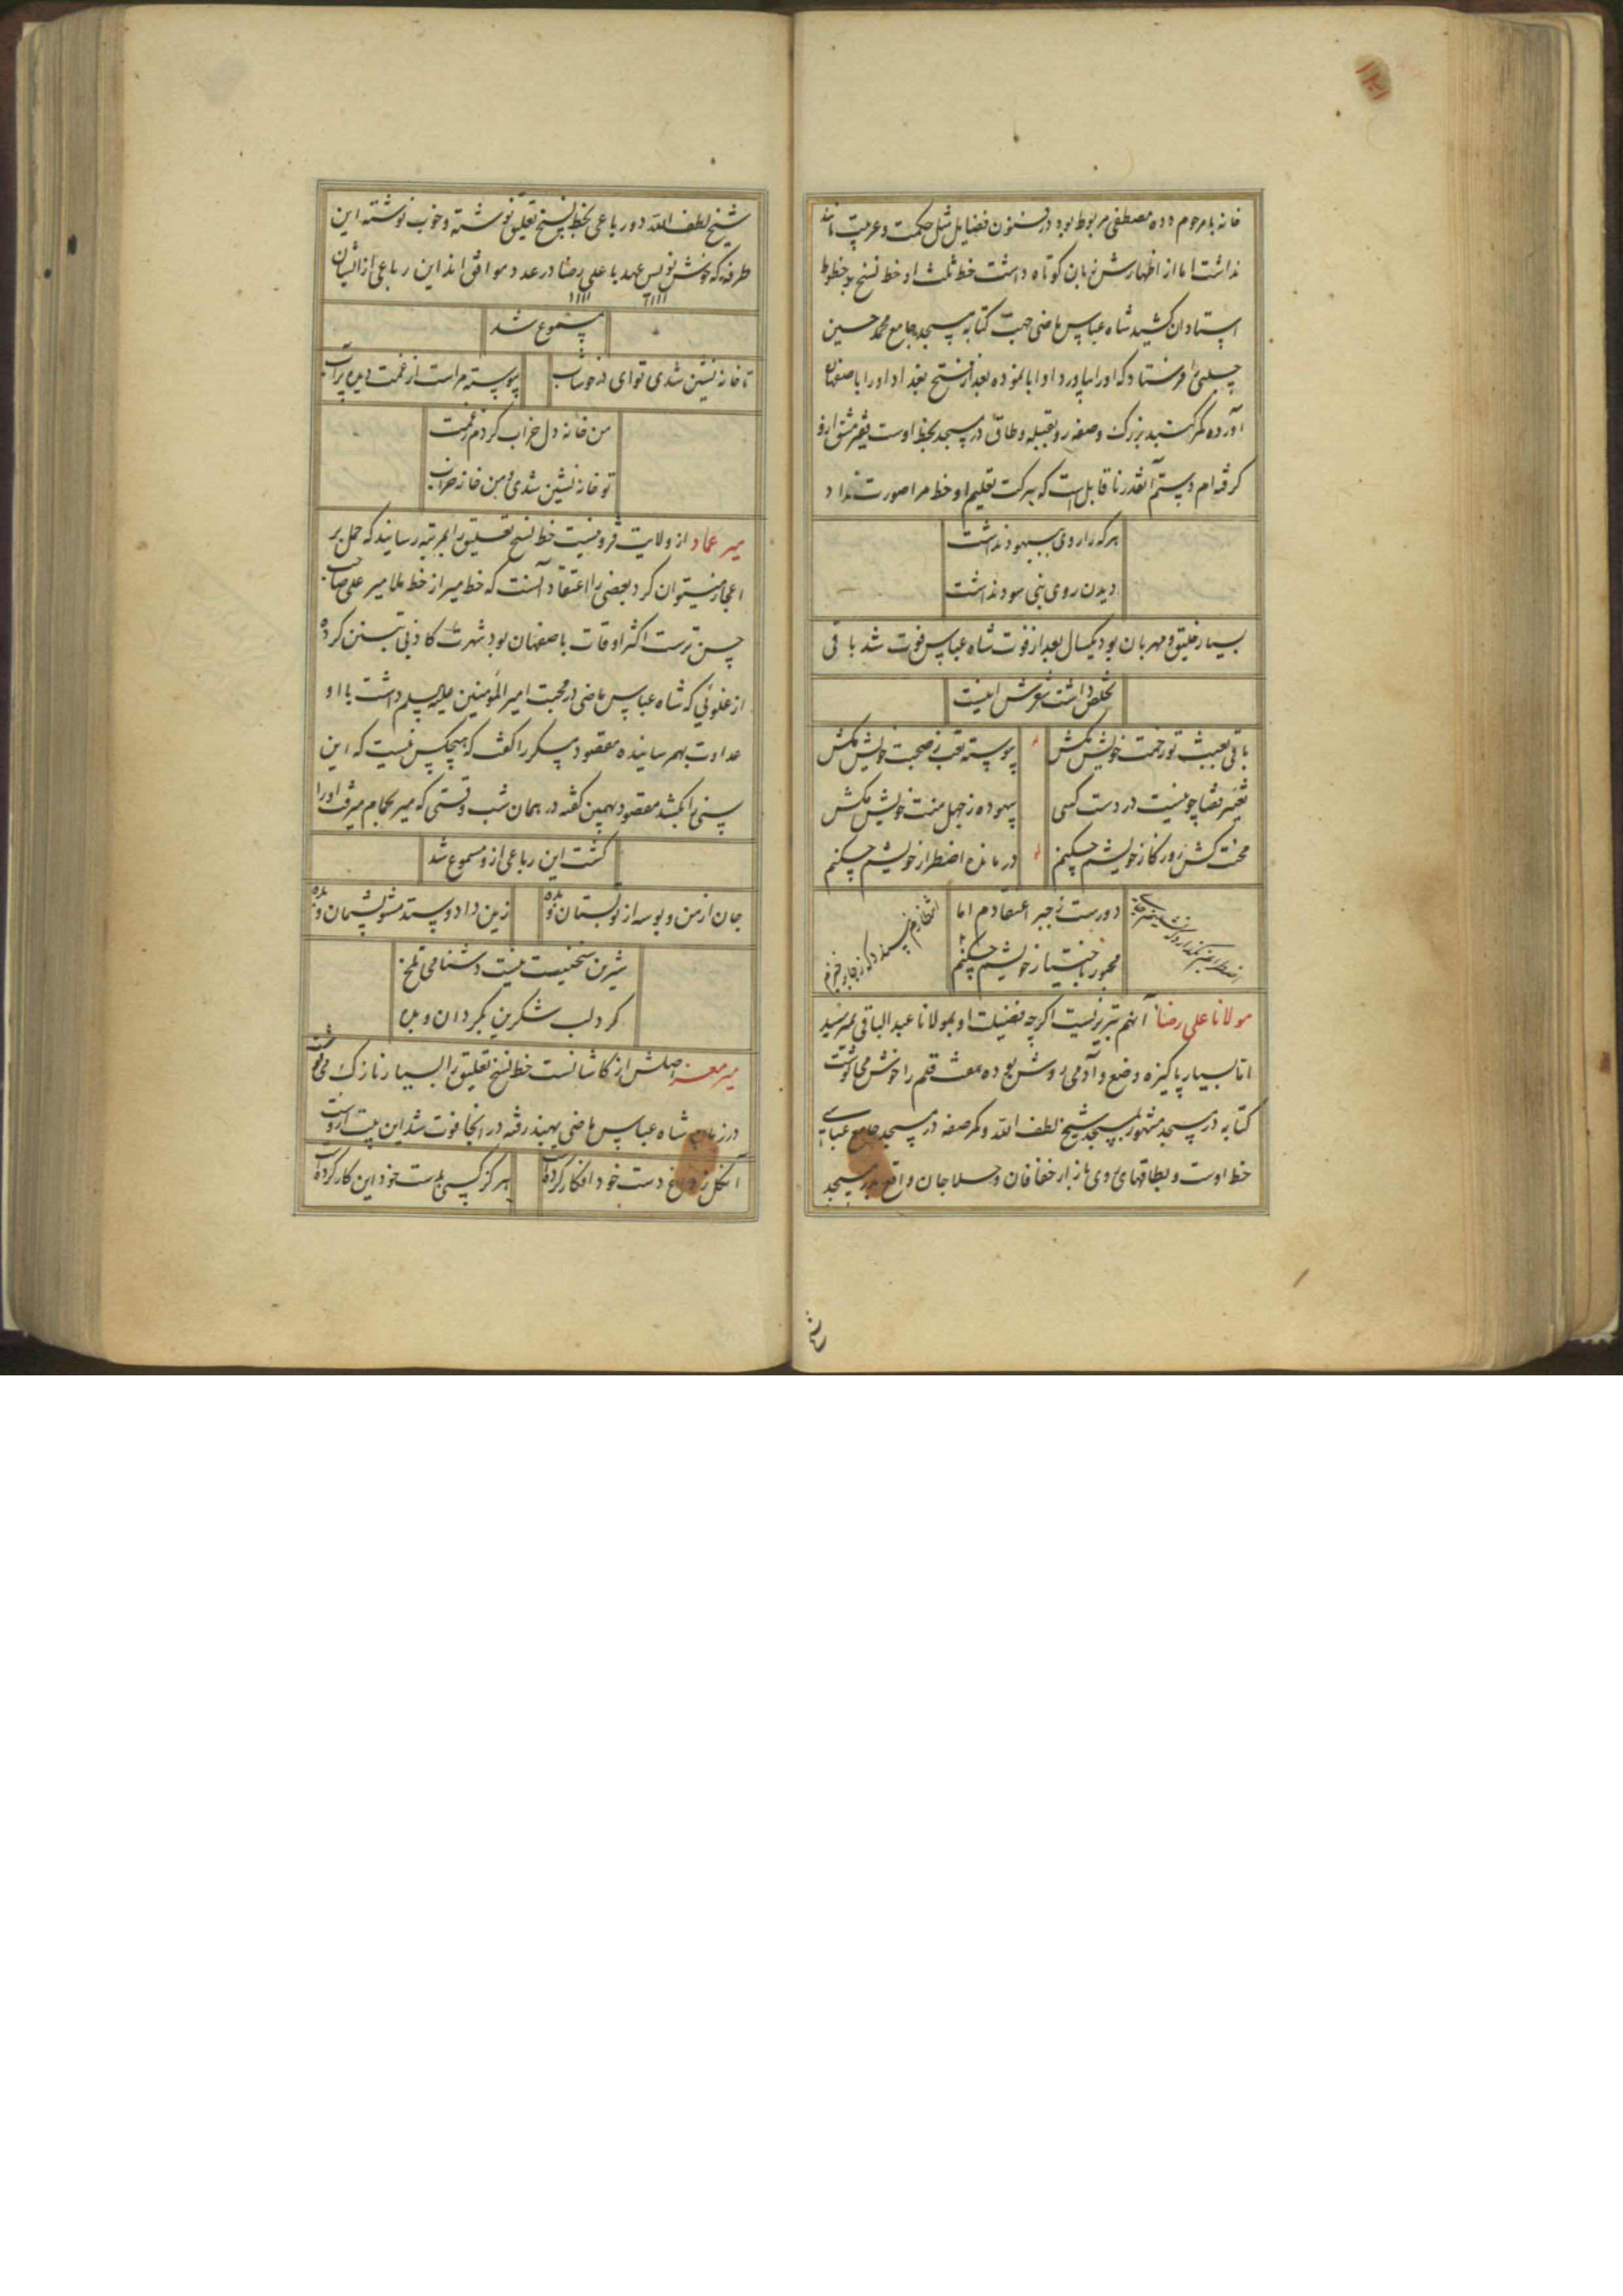 خانه با مرحوم دده مصطفی مربوط بود در فنون فضایل مثل حکمت و عربیت مانند
نداشت اما از اظهارش زبان کوتاه داشت خط ثلث او خط نسخ بر خطوط
استادان کشید شاه عباس ماضی جهت کتابه مسجد جامع محمد حسین
چلبی را فرستاد که او را بیاورد او ابا نموده بعد از فتح بغداد او را باصفهان
آورده کمر گنبد بزرگ و صفه رو بقبله و طاق در مسجد بخط اوست فقیر مشق ازو
گرفته ام دستم آنقدر ناقابل است که ببرکت تعلیم او خط مرا صورت نداد
هر که را روی ببهبود نداشت
دیدن روی نبی سود نداشت
بسیار خلیق و مهربان بود یکسال بعد از فوت شاه عباس فوت شد باقی
تخلص داشت شعرش اینست
باقی تعبیث تو زحمت خویش مکش
پیوسته تعب ز صحبت خویش مکش
تغییر قضا چو نیست در دست کسی
بیهوده ز جهل منت خویش مکش
محنت کش روزگار خویشم چکنم
درمانده اضطرار خویشم چکنم
دورست ز جبر اعتقادم اما
مجبور باختیار خویشم چکنم
مولانا علی رضا آنهم تبریزیست اگرچه فضیلت او بمولانا عبد الباقی نمیرسید
اما بسیار پاکیزه وضع و آدمی روش بوده هفت قلم را خوش می نوشت
کتابه در مسجد مشهور بمسجد شیخ لطف الله و کمر صفه در مسجد جامع عباسی
خط اوست و بطاقهای روی بازار خفافان و سلاجان واقع بدر مسجد
شیخ لطف الله دو رباعی بخط نسخ تعلیق نوشته و خوب نوشته این
طرفه که خوش نویس عهد با علی رضا در عدد موافق اند این رباعی از ایشان
۱۱۱۱ ۱۱۱۱
مسموع شد
تا خانه نشین شدی تو ای در خوشاب
پیوسته مراست از غمت دیده پر آب
من خانه دل خراب کردم ز غمت
تو خانه نشین شدی و من خانه خراب
میر عماد از ولایت قزوینیست خط نسخ تعلیق را بمرتبه رسانید که حمل بر
اعجاز میتوان کرد بعضی را اعتقاد آنست که خط میر از خط ملا میر علی صاحب
حسن ترست اکثر اوقات باصفهان بود شهرت کاذبی بتسنن کرده
از غلوئی که شاه عباس ماضی در محبت امیر المؤمنین علیه السلم داشت با او
عداوت بهم رسانیده مقصود مسگر را گفت که هیچکس نیست که این
سنی را بکشد مقصود بهمین گفته در همان شب وقتی که میر بحمام میرفت او را
کشت این رباعی ازو مسموع شد
جان از من و بوسه از تو بستان و بده
زین داد و ستد مشو پشیمان و بده
شیرین سخنیست نیست دشنامی تلخ
گرد لب شکرین بگردان و بده
میر معز اصلش از کاشانست خط نسخ تعلیق را بسیار نازک می نوشت
در زمان شاه عباس ماضی بهند رفته در انجا فوت شد این بیت ازوست
آنگل ز داغ دست خود افگار کرده است
هرگز کسی بدست خود این کار کرده است